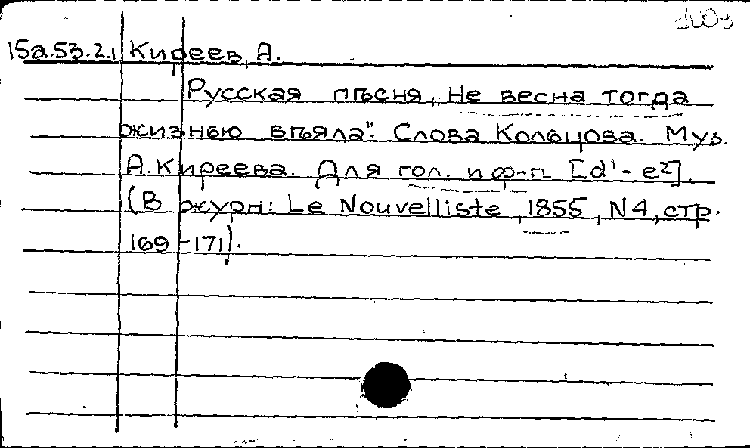 15а.53.2.1 Киреев, А.
Русская пѣсня „Не весна тогда
жизнью вѣяла". Слова Кольцова. Муз.
А. Киреева. Для гол. и ф-п. [d¹ - e²].
(В журн: Le Nouvelliste, 1855, N4, стр.
169-171).